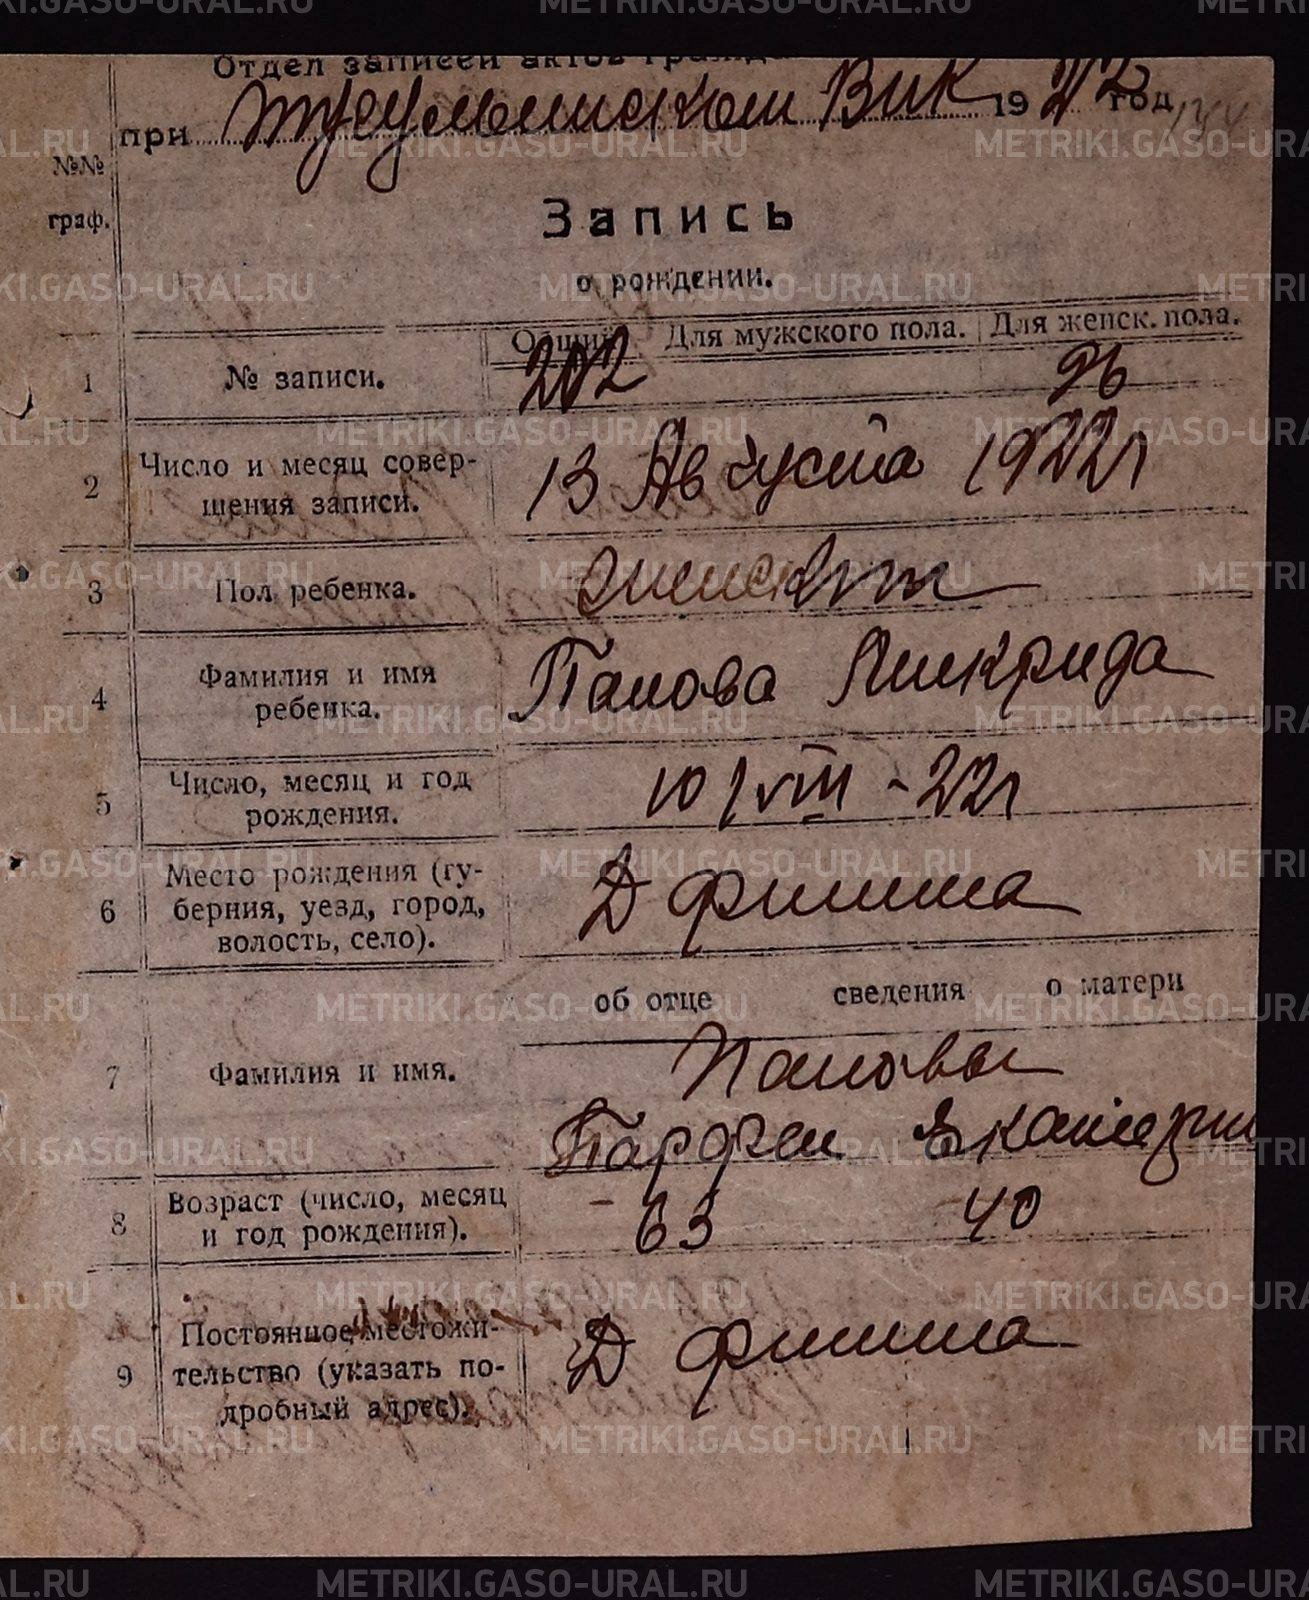 Отдел записей актов гражда
при Тугулымском Вик 1922 год
№№
граф.
Запись
о рождении.
Общий Для мужского пола. Для женск. пола.
1 № записи. 202 96
2 Число и месяц совер-
шения записи. 13 Августа 1922 г
3 Пол ребенка. женский
4 Фамилия и имя
ребенка. Панова
5 Число, месяц и год
рождения. 10/VIII - 22 г
6 Место рождения (гу-
берния, уезд, город,
волость, село). Д
об отце сведения о матери
7 Фамилия и имя. Пановы
Парфен Екатерин
8 Возраст (число, месяц
и год рождения). 63 40
9 Постоянное местожи-
тельство (указать по-
дробный адрес). Д
METRIKI.GASO-URAL.RU